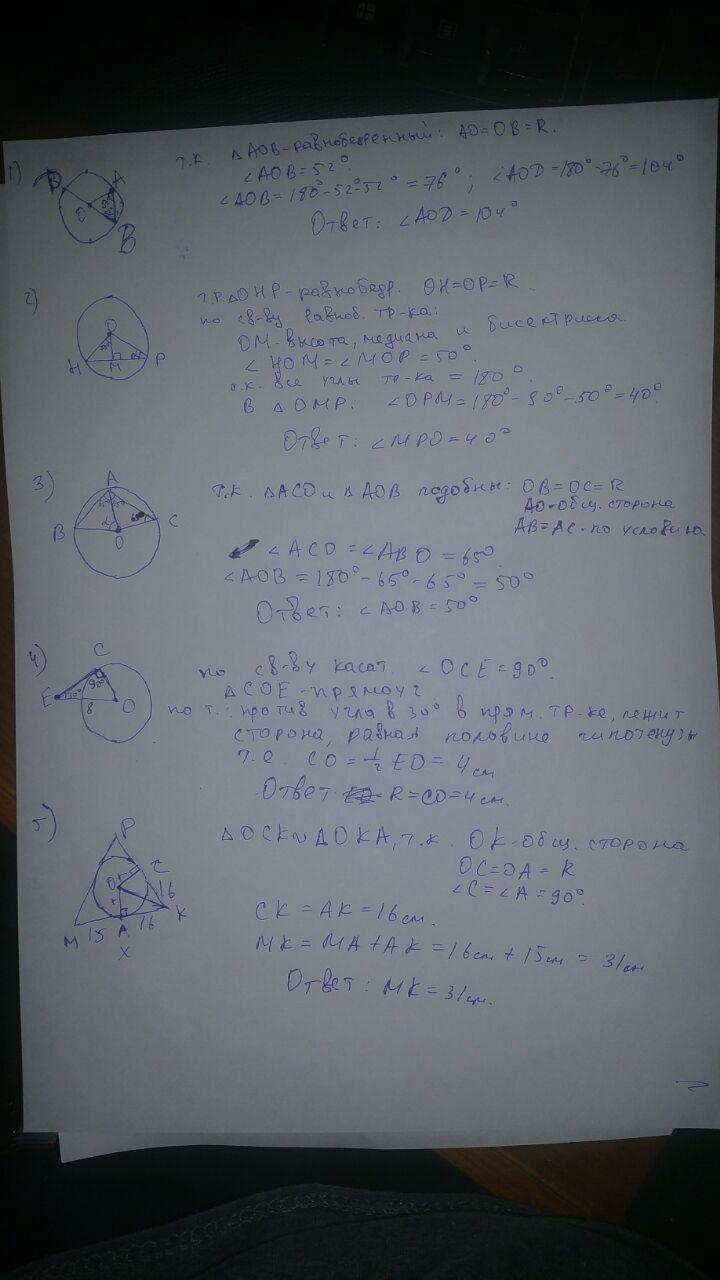 1)
т.к. △AOB-равнобедренный: AO=OB=R.
∠AOB=52°.
∠AOB=180°-52°-52°=76°; ∠AOD=180°-76°=104°
Ответ: ∠AOD=104°
D A
O
B
2)
т.к. △OHP-равнобедр. OH=OP=R
по св-ву равноб. тр-ка:
OM-высота, медиана и бисектрисса
∠HOM=∠MOP=50°.
т.к. все углы тр-ка = 180°.
В △OMP: ∠OPM=180°-90°-50°=40°
Ответ: ∠MPO=40°
O
H M P
3)
т.к. △ACO и △AOB подобны: OB=OC=R
AO-общ. сторона
AB=AC-по условию.
∠ACO=∠ABO=65°
∠AOB=180°-65°-65°=50°
Ответ: ∠AOB=50°
A
B O C
4)
по св-ву касат. ∠OCE=90°.
△COE-прямоуг.
по т.: против угла в 30° в прям. тр-ке, лежит
сторона, равная половине гипотенузы
т.е. CO=1/2 EO=4см
Ответ R=CO=4см.
C
E 30° 90°
8 O
5)
△OCK∾△OKA, т.к. OK-общ. сторона
OC=OA=R
∠C=∠A=90°.
CK=AK=16см.
MK=MA+AK=16см+15см=31см
Ответ: MK=31см.
P
O C
16
K
M 15 A 16
X